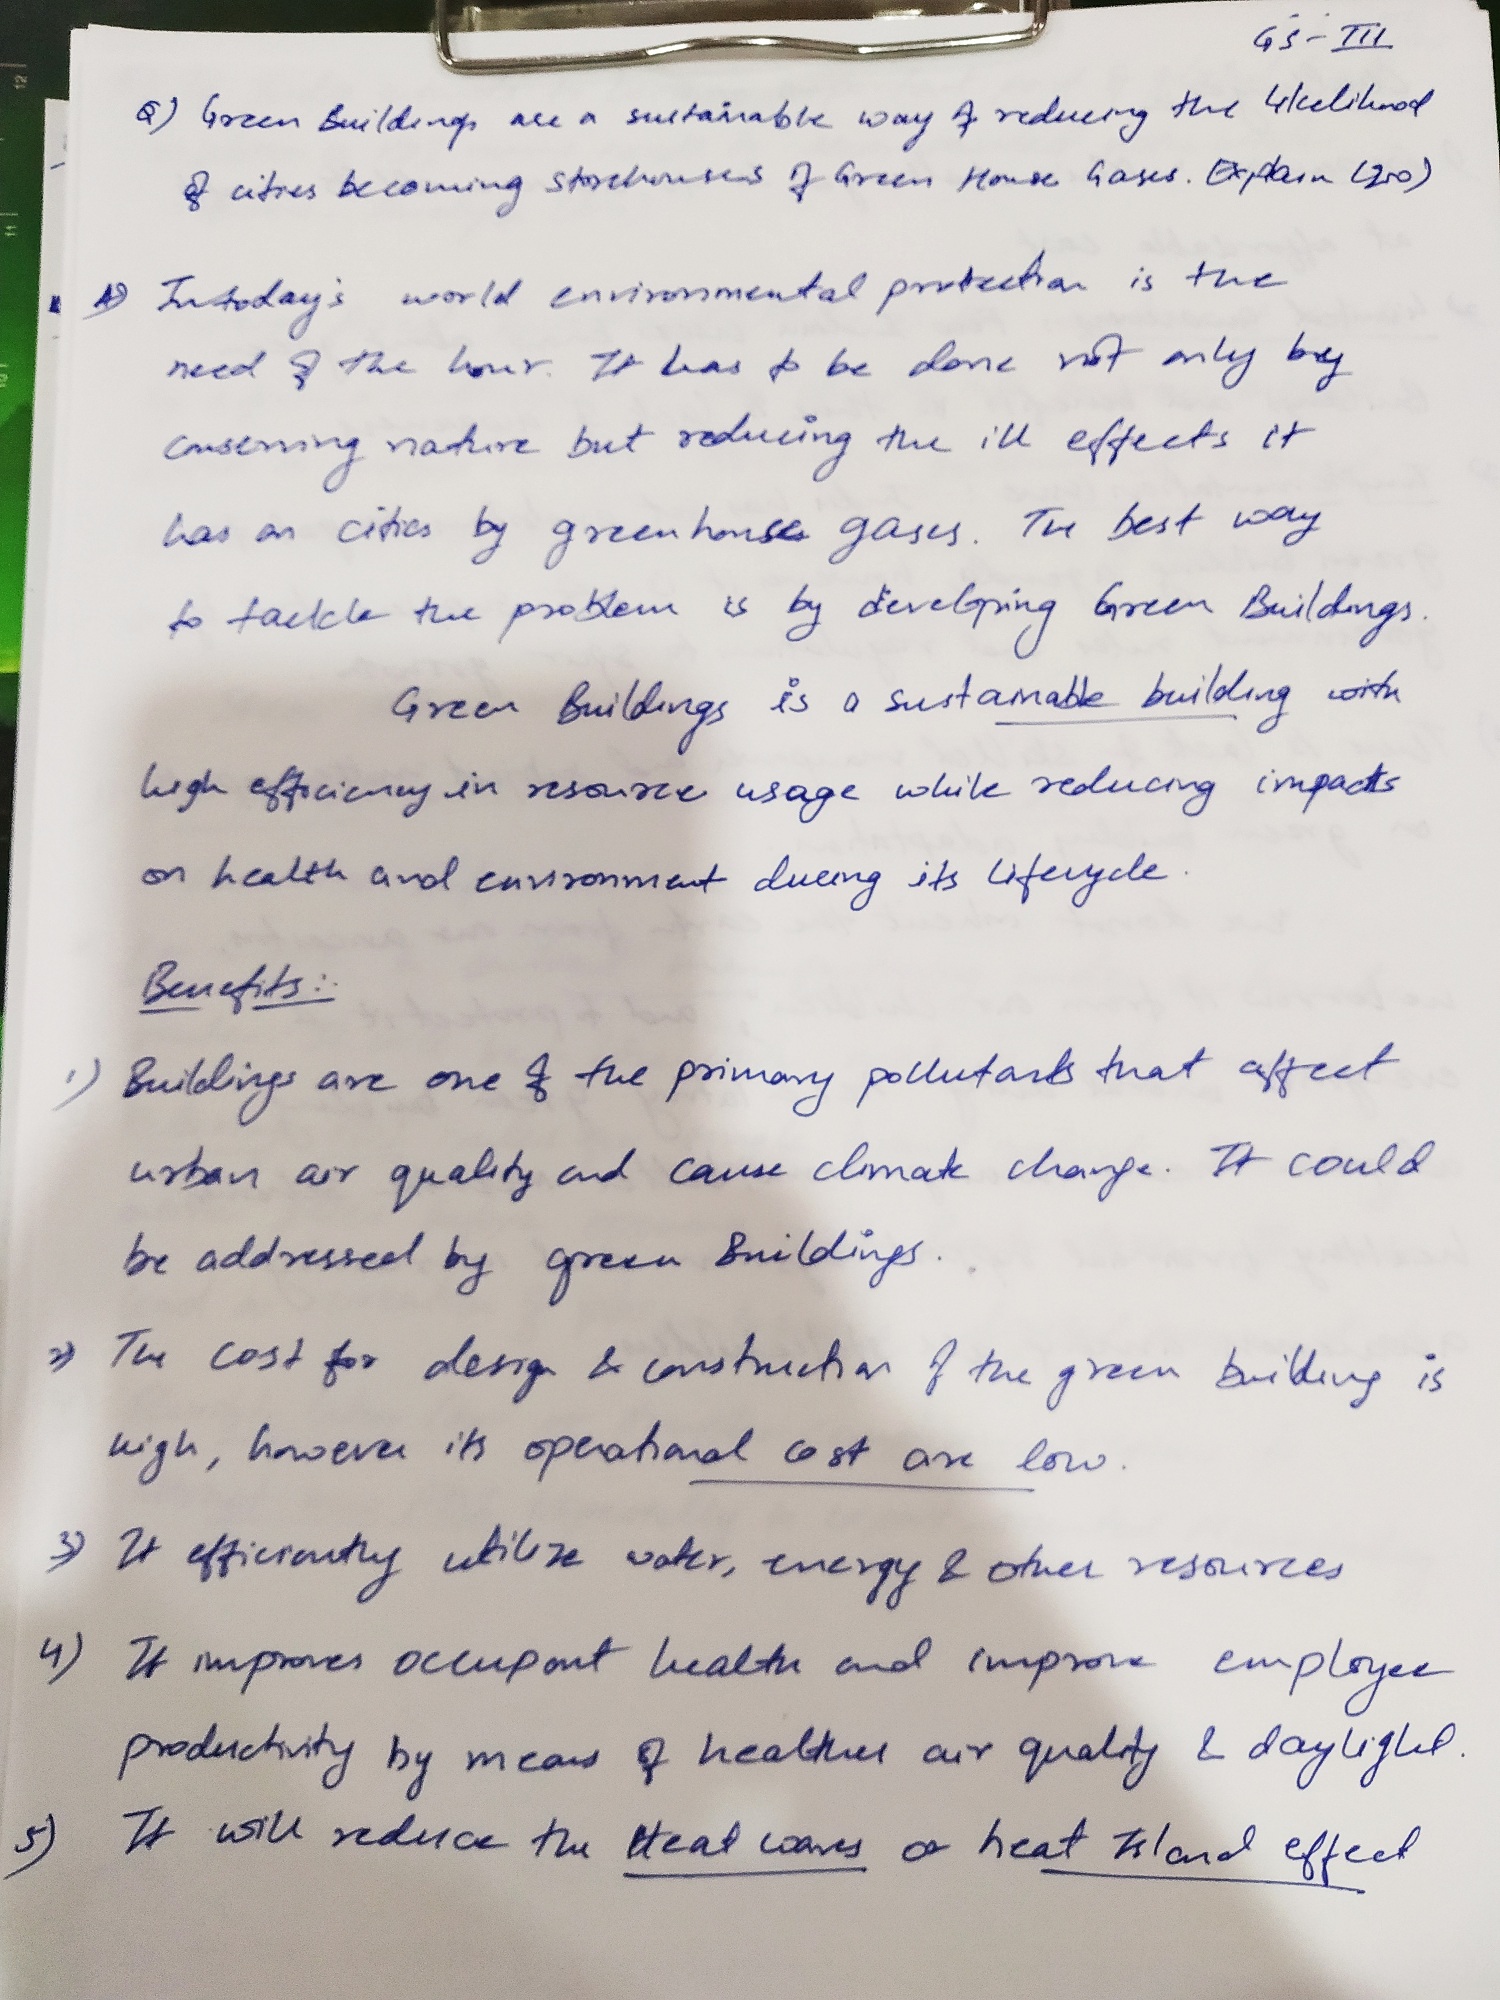 GS-III
Q) Green Buildings are a sustainable way of reducing the likelihood
of cities becoming storehouses of Green House Gases. Explain (200)
A) In today's world environmental protection is the
need of the hour. It has to be done not only by
conserving nature but reducing the ill effects it
has on cities by greenhouse gases. The best way
to tackle the problem is by developing Green Buildings.
Green Buildings is a sustainable building with
high efficiency in resource usage while reducing impacts
on health and environment during its lifecycle.
Benefits:-
1) Buildings are one of the primary pollutants that affect
urban air quality and cause climate change. It could
be addressed by green Buildings.
2) The cost for design & construction of the green building is
high, however its operational cost are low.
3) It efficiently utilize water, energy & other resources
4) It improves occupant health and improve employee
productivity by means of healthier air quality & daylight.
5) It will reduce the Heat waves or heat Island effect